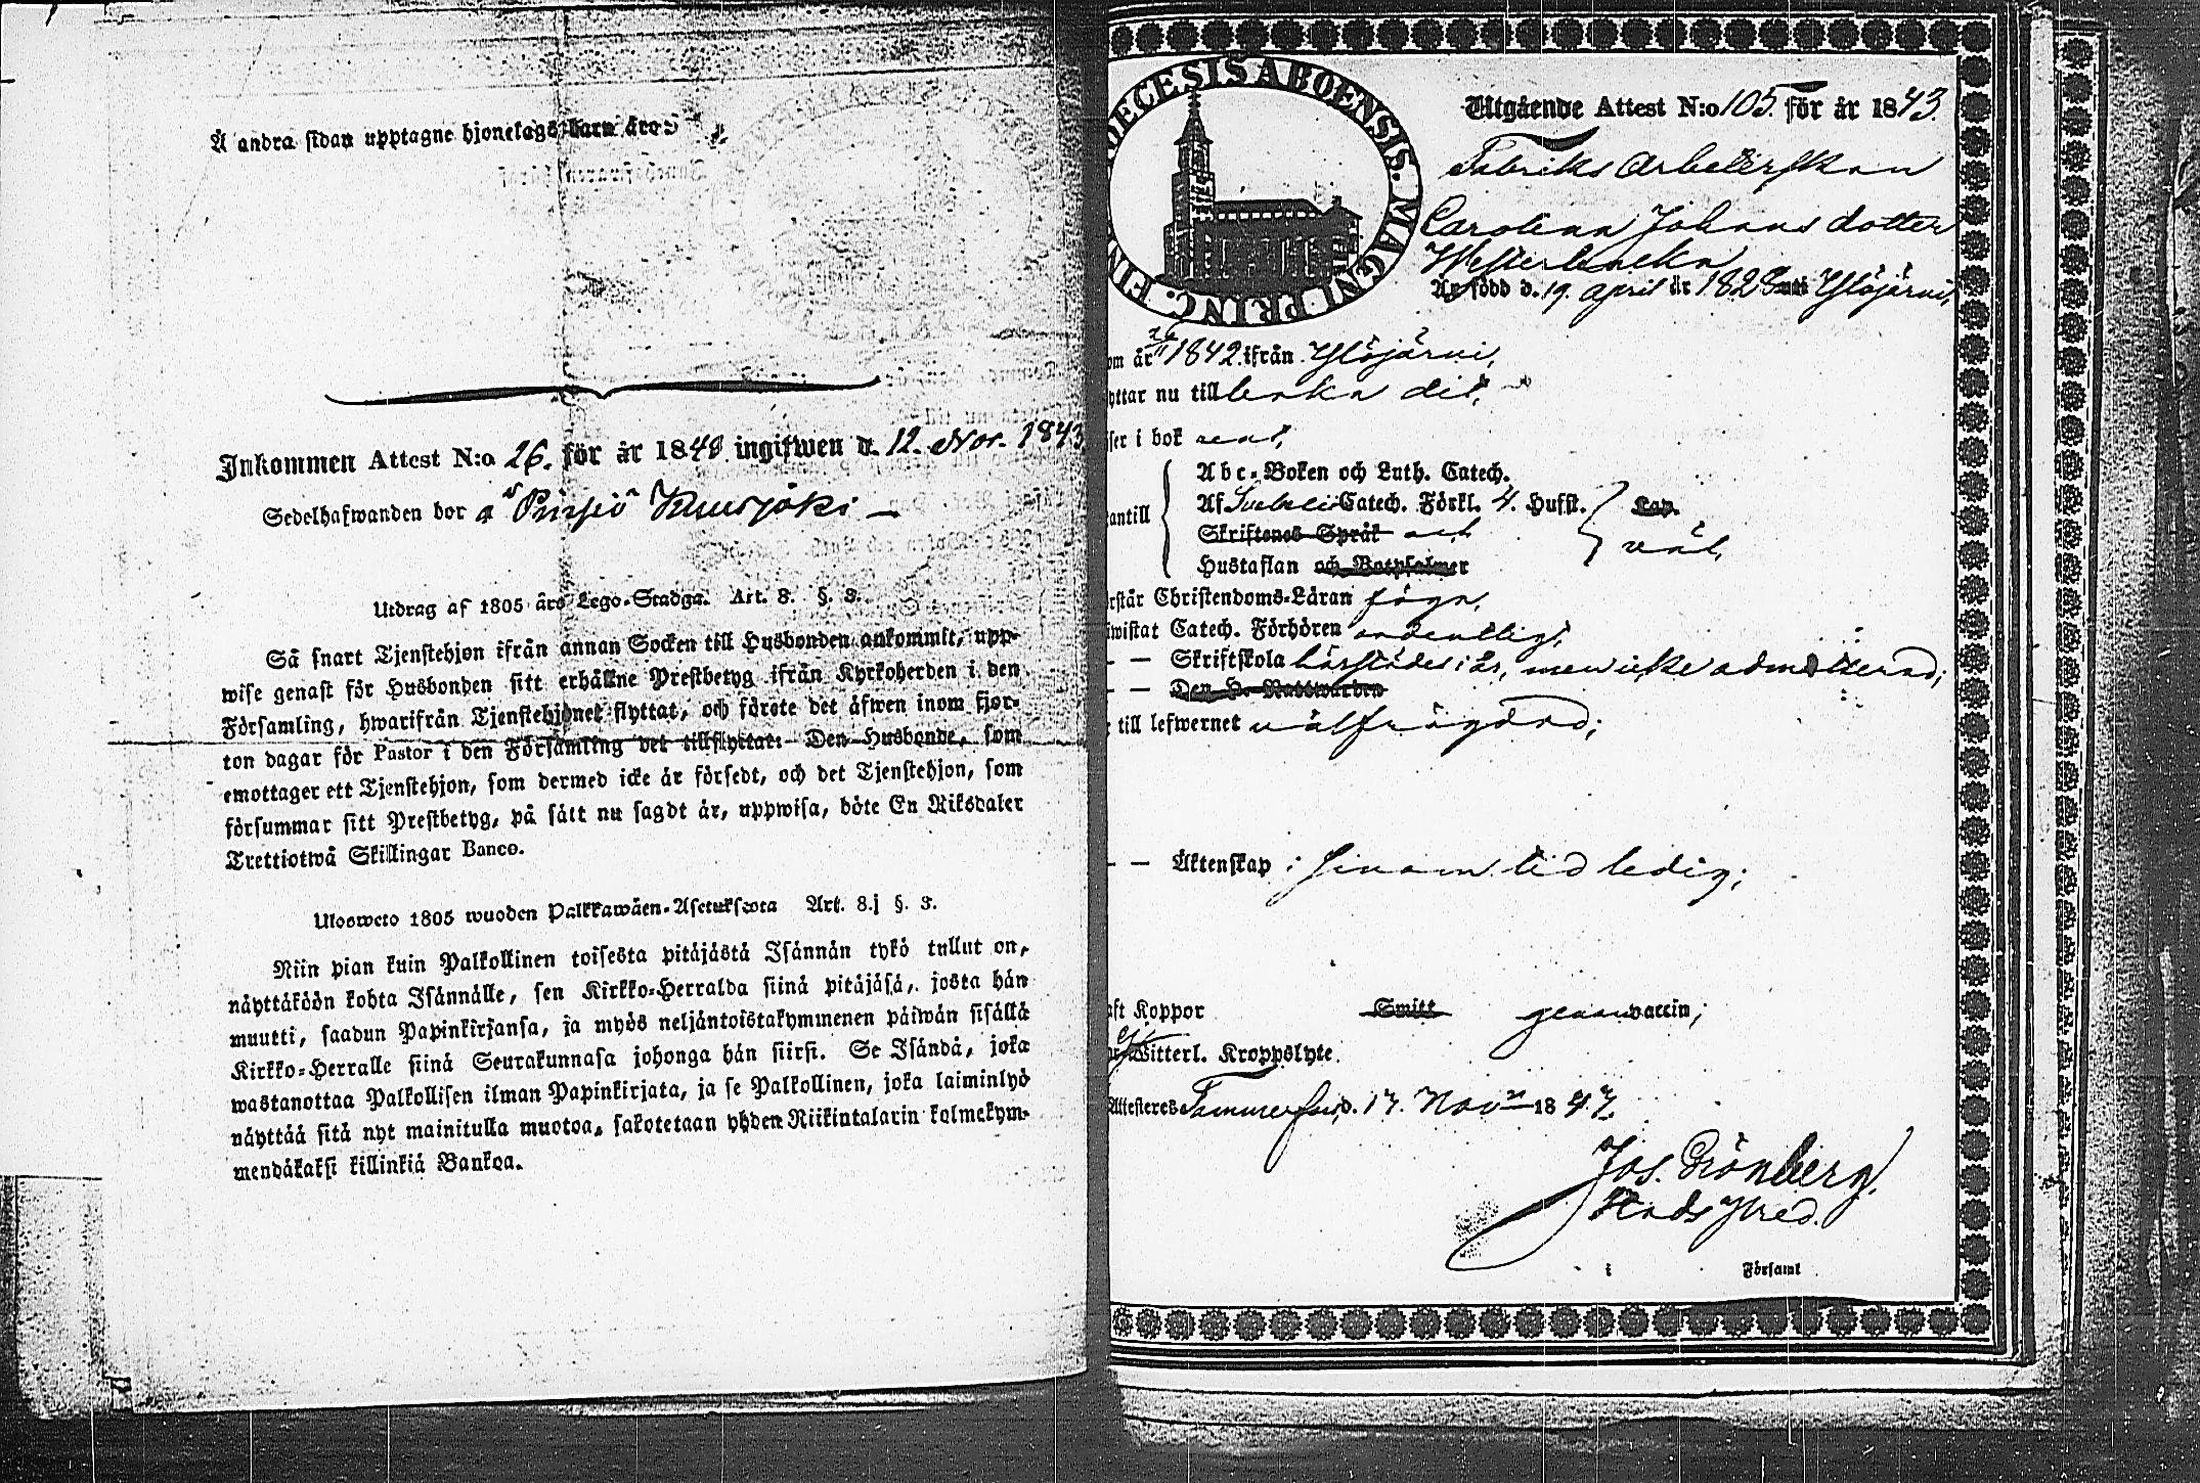 Å andra sidan upptagne hjonelags barn äro:
Inkommen Attest N:o 26. för år 1843 ingifwen d. 12. Nov. 1843
Sedelhafwanden bor å Kuusjoki —
Utdrag af 1805 års Lego-Stadga. Art. 8. §. 3.
Så snart Tjenstehjon ifrån annan Socken till Husbonden ankommit, upp-
wise genast för Husbonden sitt erhållne Prestbetyg ifrån Kyrkoherden i den
Församling, hwarifrån Tjenstehjonet flyttat, och förete det äfwen inom fjor-
ton dagar för Pastor i den Församling det tillflyttat: Den Husbonde, som
emottager ett Tjenstehjon, som dermed icke är försedt, och det Tjenstehjon, som
försummar sitt Prestbetyg, på sätt nu sagdt är, uppwisa, böte En Riksdaler
Trettiotwå Skillingar Banco.
Ulosweto 1805 wuoden Palkkawäen-Asetuksesta Art. 8.j §. 3.
Niin pian kuin Palkollinen toisesta pitäjästä Isännän tykö tullut on,
näyttäköön kohta Isännälle, sen Kirkko-Herralda siinä pitäjäsä, josta hän
muutti, saadun Papinkirjansa, ja myös neljäntoistakymmenen päiwän sisällä
Kirkko-Herralle siinä Seurakunnasa johonga hän siirsi. Se Isändä, joka
wastanottaa Palkollisen ilman Papinkirjata, ja se Palkollinen, joka laiminlyö
näyttää sitä nyt mainitulla muotoa, sakotetaan yhden Riikintalarin kolmekym-
mendäkaksi killinkiä Bankoa.
DECESIS ABOENSIS. MAGNI PRINC. FIN
Utgående Attest N:o 105. för år 1843.
Fabriks Arbeterskan
Carolina Johans dotter
Westerbacka
Är född d. 19. april år 1828 uti Ylöjärvi,
om år 1842 ifrån Ylöjärvi,
yttar nu till baka dit,
ser i bok rent,
antill
Abc-Boken och Luth. Catech.
Af Svebelii Catech. Förkl. 4. Hufst.
Skriftenes Språk och
Hustaflan och Botpsalmer
Lap.
väl,
rstår Christendoms-Läran föga,
iwistat Catech. Förhören ordentligt,
— — Skriftskola härstädes i år, men icke admitterad;
— — Den H. Nattwarden
till lefwernet välfrägdad;
— — Äktenskap : hinom tid ledig;
aft Koppor Smitt genom vaccin;
ej Witterl. Kroppslyte
Attesteres Tammerfors d. 17. Novr 1843.
Jos. Grönberg.
Stads Pred.
i Församl